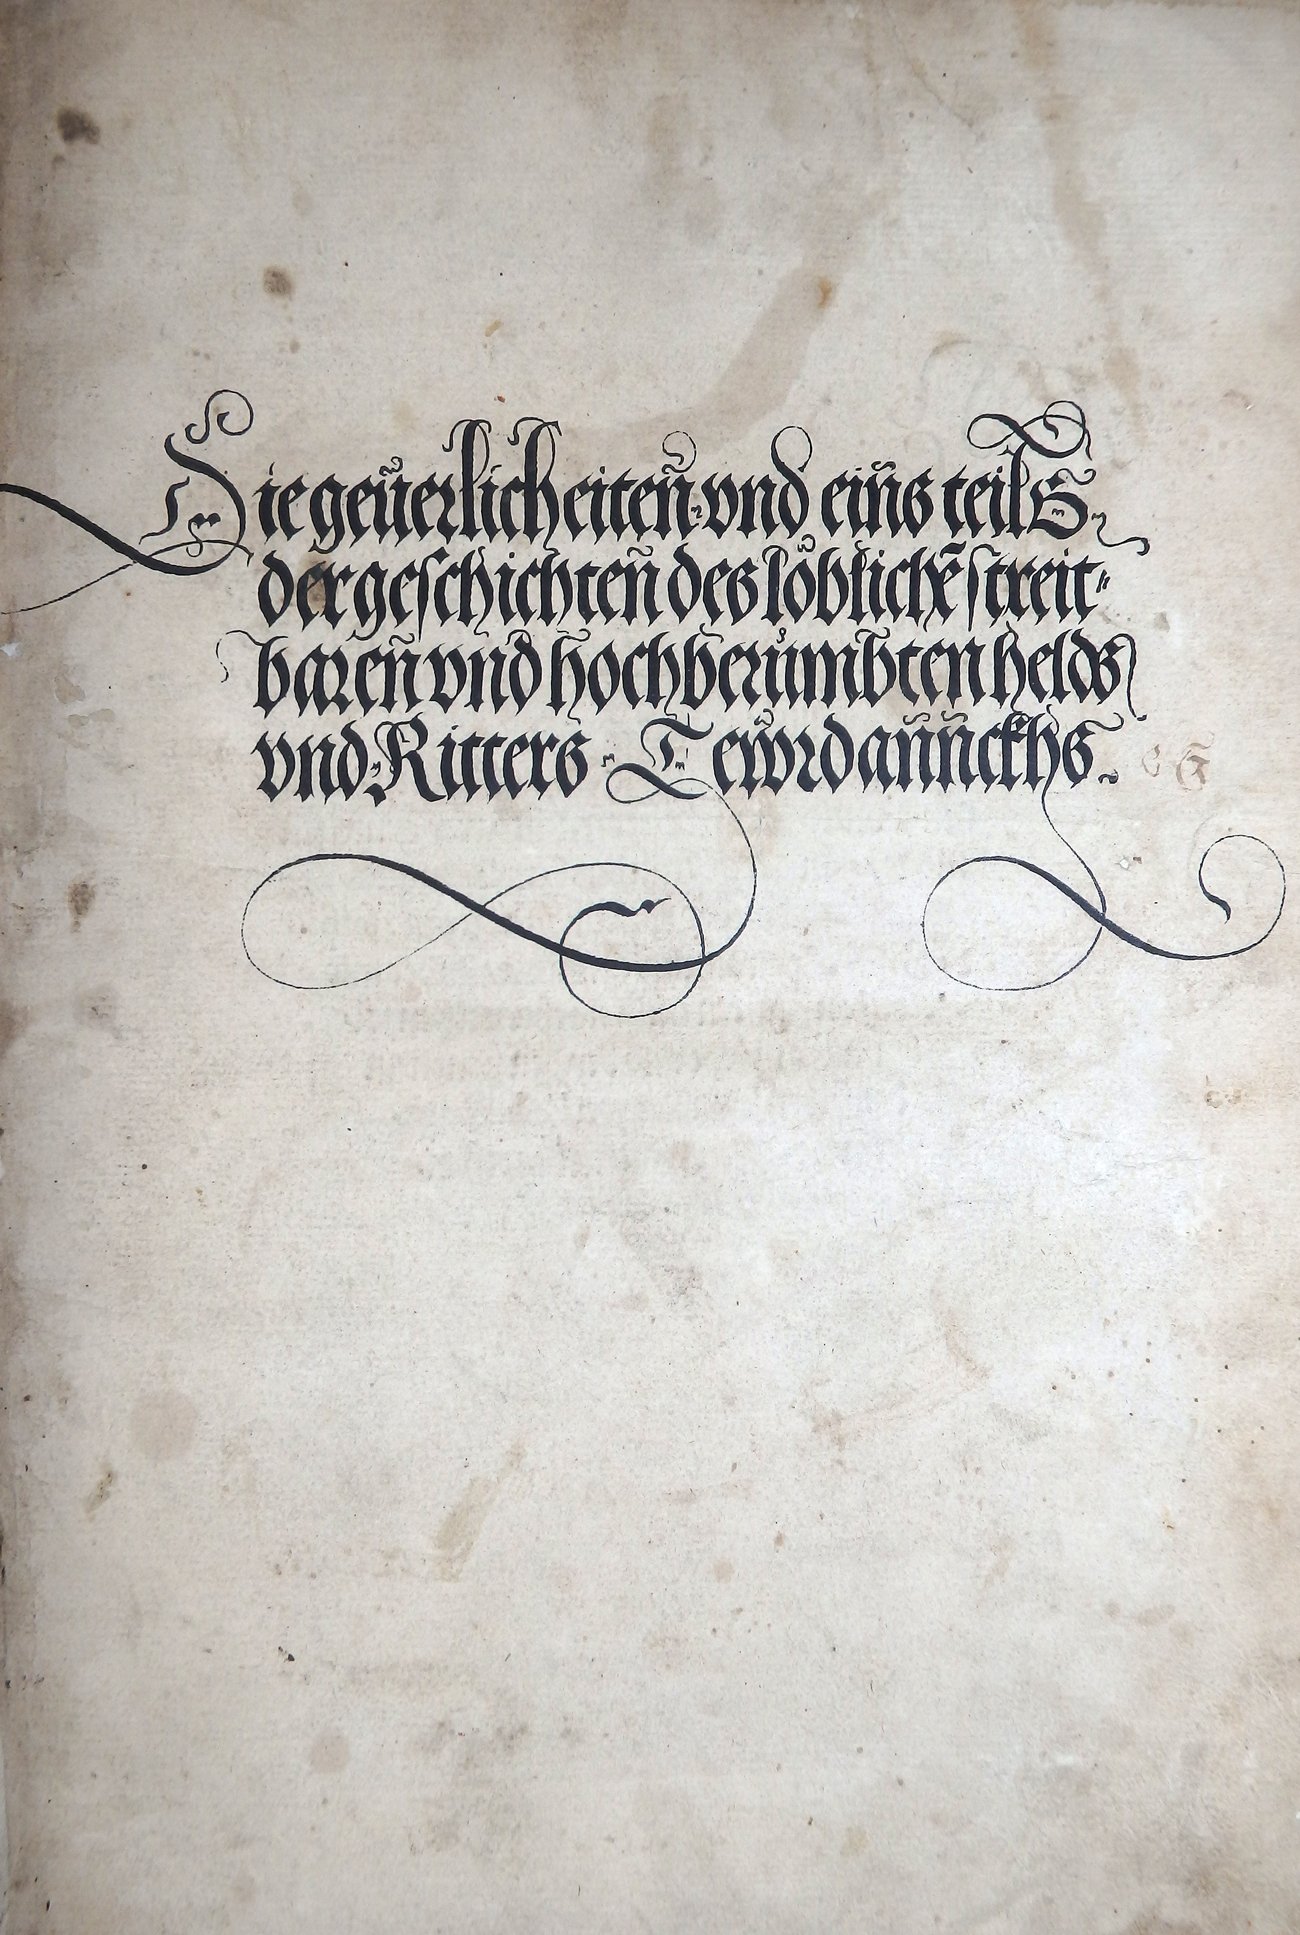 Die geüerlicheiten vnd eins teilS
der geschichten des löblichẽ streit⸗
baren vnd hochberůmbten helds
vnd Ritters Tewrdannckhs